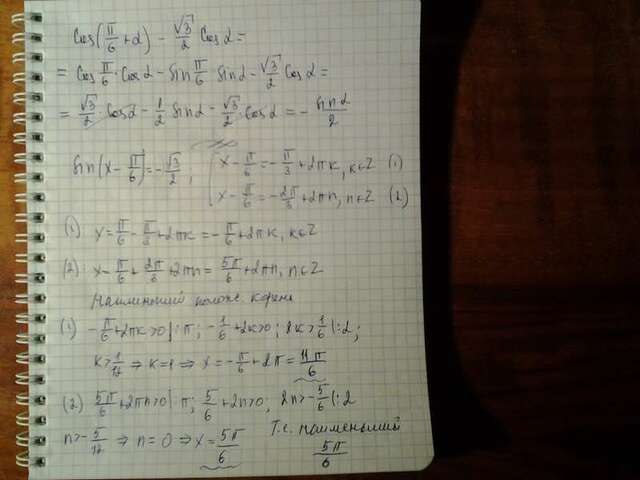 cos(π/6 + α) − √3/2 cos α =
= cos π/6 · cos α − sin π/6 sin α − √3/2 cos α =
= √3/2 · cos α − 1/2 sin α − √3/2 · cos α = − sin α/2
sin(x − π/6) = −√3/2, [ x − π/6 = −π/3 + 2πk, k∈Z (1)
x − π/6 = −2π/3 + 2πn, n∈Z (2)
(1) x = π/6 − π/3 + 2πk = −π/6 + 2πk, k∈Z
(2) x = π/6 + 2π/3 + 2πn = 5π/6 + 2πn, n∈Z
Наименьший полож. корень
(1) −π/6 + 2πk > 0 | : π; −1/6 + 2k > 0; 2k > 1/6 | : 2;
k > 1/12 ⇒ k = 1 ⇒ x = −π/6 + 2π = 11π/6
(2) 5π/6 + 2πn > 0 | : π; 5/6 + 2n > 0; 2n > −5/6 | : 2
n > −5/12 ⇒ n = 0 ⇒ x = 5π/6 Т.е. наименьший
5π/6